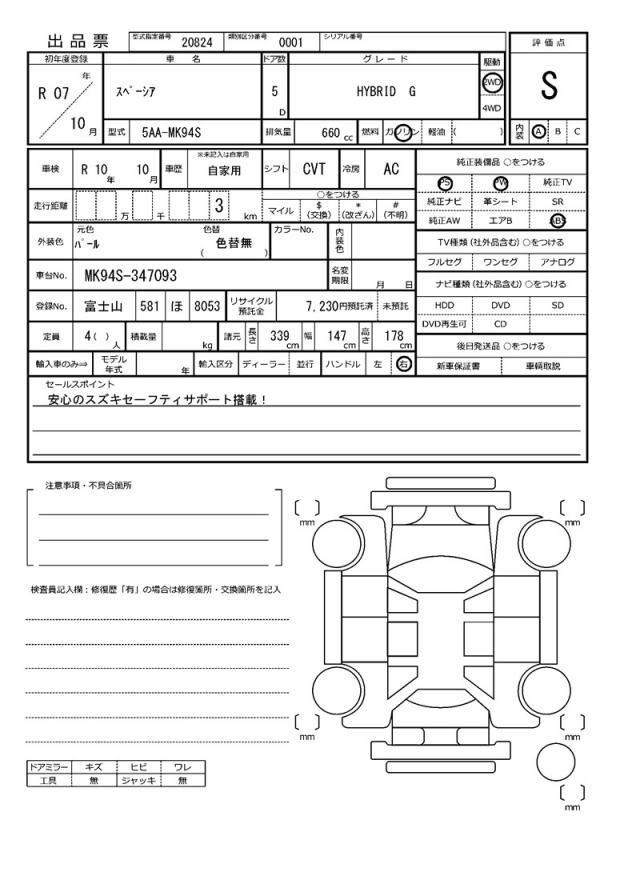 出品票 型式指定番号 20824 類別区分番号 0001 シリアル番号
評価点
S
内装 A B C
初年度登録 車名 ドア数 グレード 駆動
R 07 年 10 月 ｽﾍﾟｰｼｱ 5 D HYBRID G 2WD 4WD
型式 5AA-MK94S 排気量 660 cc 燃料 ガソリン 軽油 ( )
車検 R 10 年 10 月 車歴 ※未記入は自家用 自家用 シフト CVT 冷房 AC
走行距離 万 千 3 km ○をつける
マイル $ (交換) * (改ざん) # (不明)
外装色 元色 ﾊﾟｰﾙ 色替 色替無 ( ) カラーNo. 内装色
車台No. MK94S-347093 名変期限 月 日
登録No. 富士山 581 ほ 8053 リサイクル預託金 7,230円預託済 未預託
定員 4( ) 人 積載量 kg 諸元 長さ 339 cm 幅 147 cm 高さ 178 cm
輸入車のみ⇒ モデル年式 年 輸入区分 ディーラー 並行 ハンドル 左 右
純正装備品 ○をつける
PS PW 純正TV
純正ナビ 革シート SR
純正AW エアB ABS
TV種類 (社外品含む) ○をつける
フルセグ ワンセグ アナログ
ナビ種類 (社外品含む) ○をつける
HDD DVD SD
DVD再生可 CD
後日発送品 ○をつける
新車保証書 車輌取説
セールスポイント
安心のスズキセーフティサポート搭載！
注意事項・不具合箇所
検査員記入欄：修復歴「有」の場合は修復箇所・交換箇所を記入
ドアミラー キズ ヒビ ワレ
工具 無 ジャッキ 無
〔 〕 mm
〔 〕 mm
〔 〕 mm
〔 〕 mm
〔 〕 mm